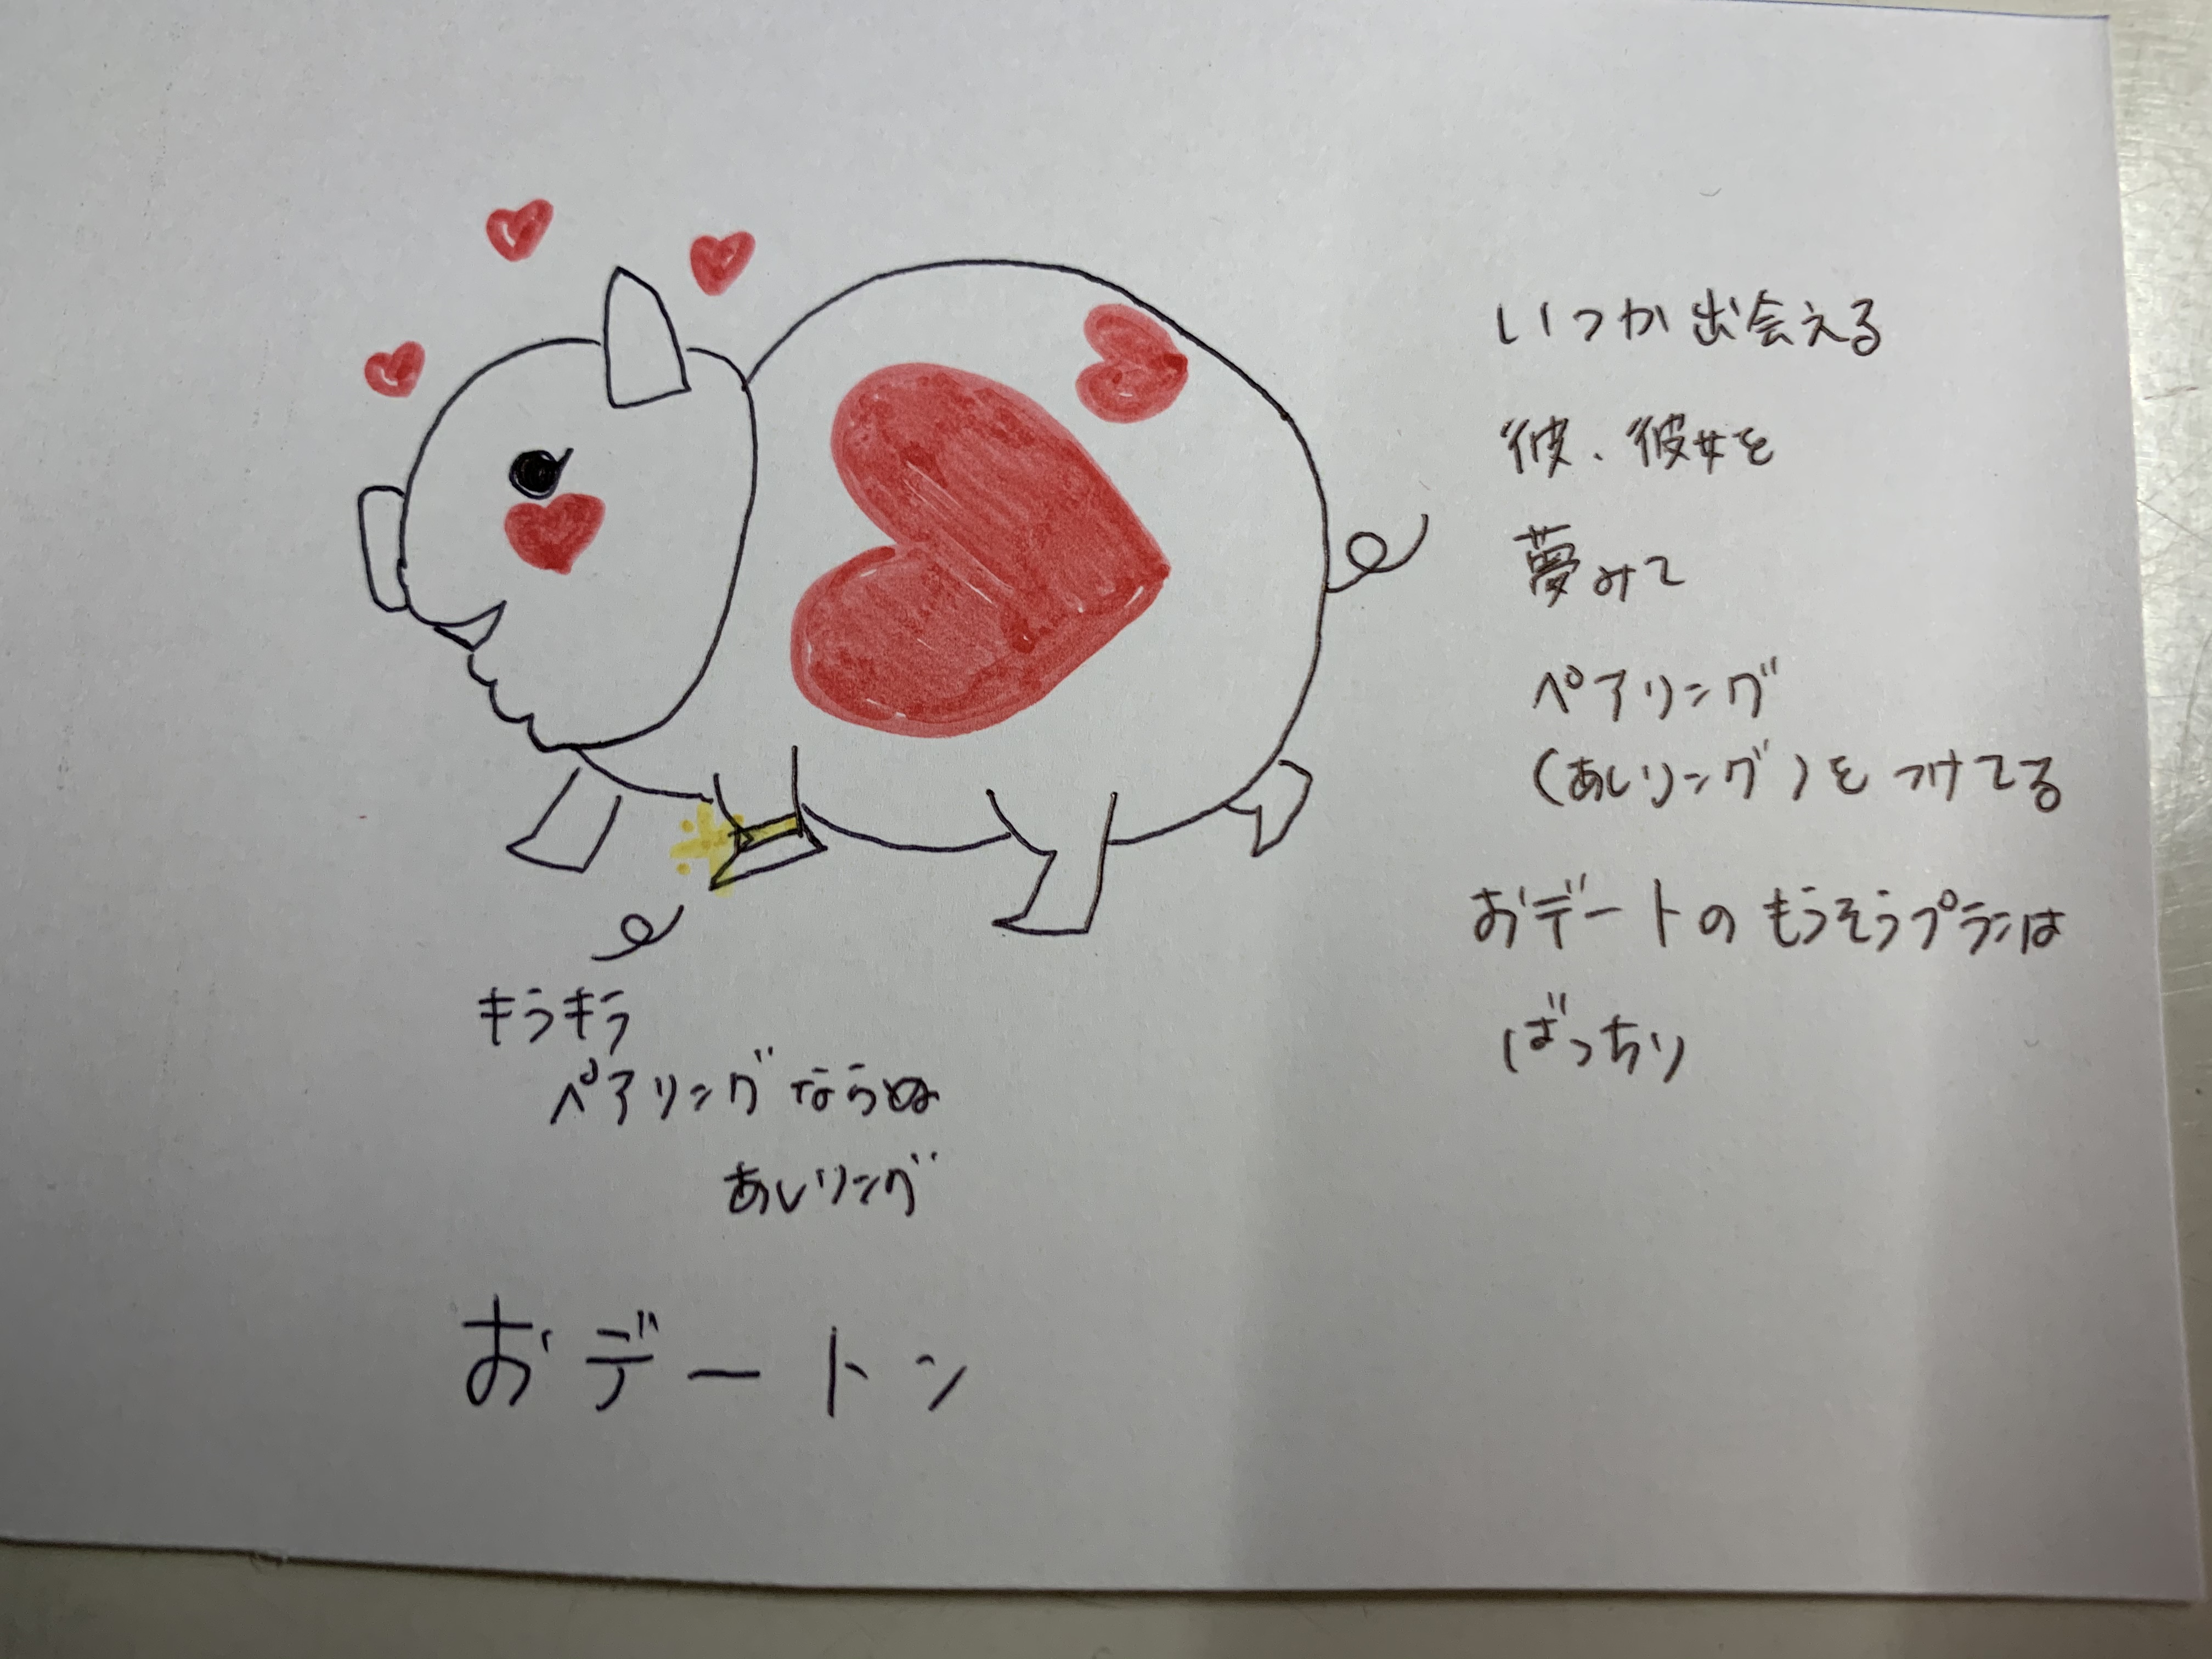 いつか出会える
彼、彼女を
夢みて
ペアリング
(あしリング)をつけてる
おデートのもうそうプランは
ばっちり
キラキラ
ペアリングならぬ
あしリング
おデートン